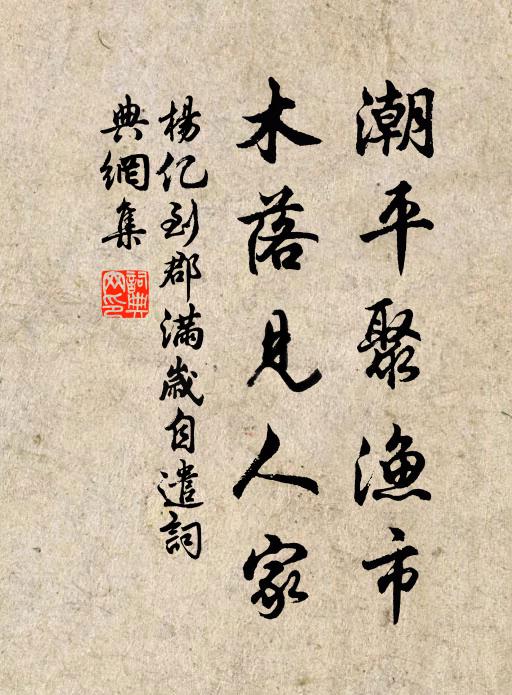 潮平聚漁市
木落見人家
楊亿到郡滿歲自遣詞
典網集
詞典
网印